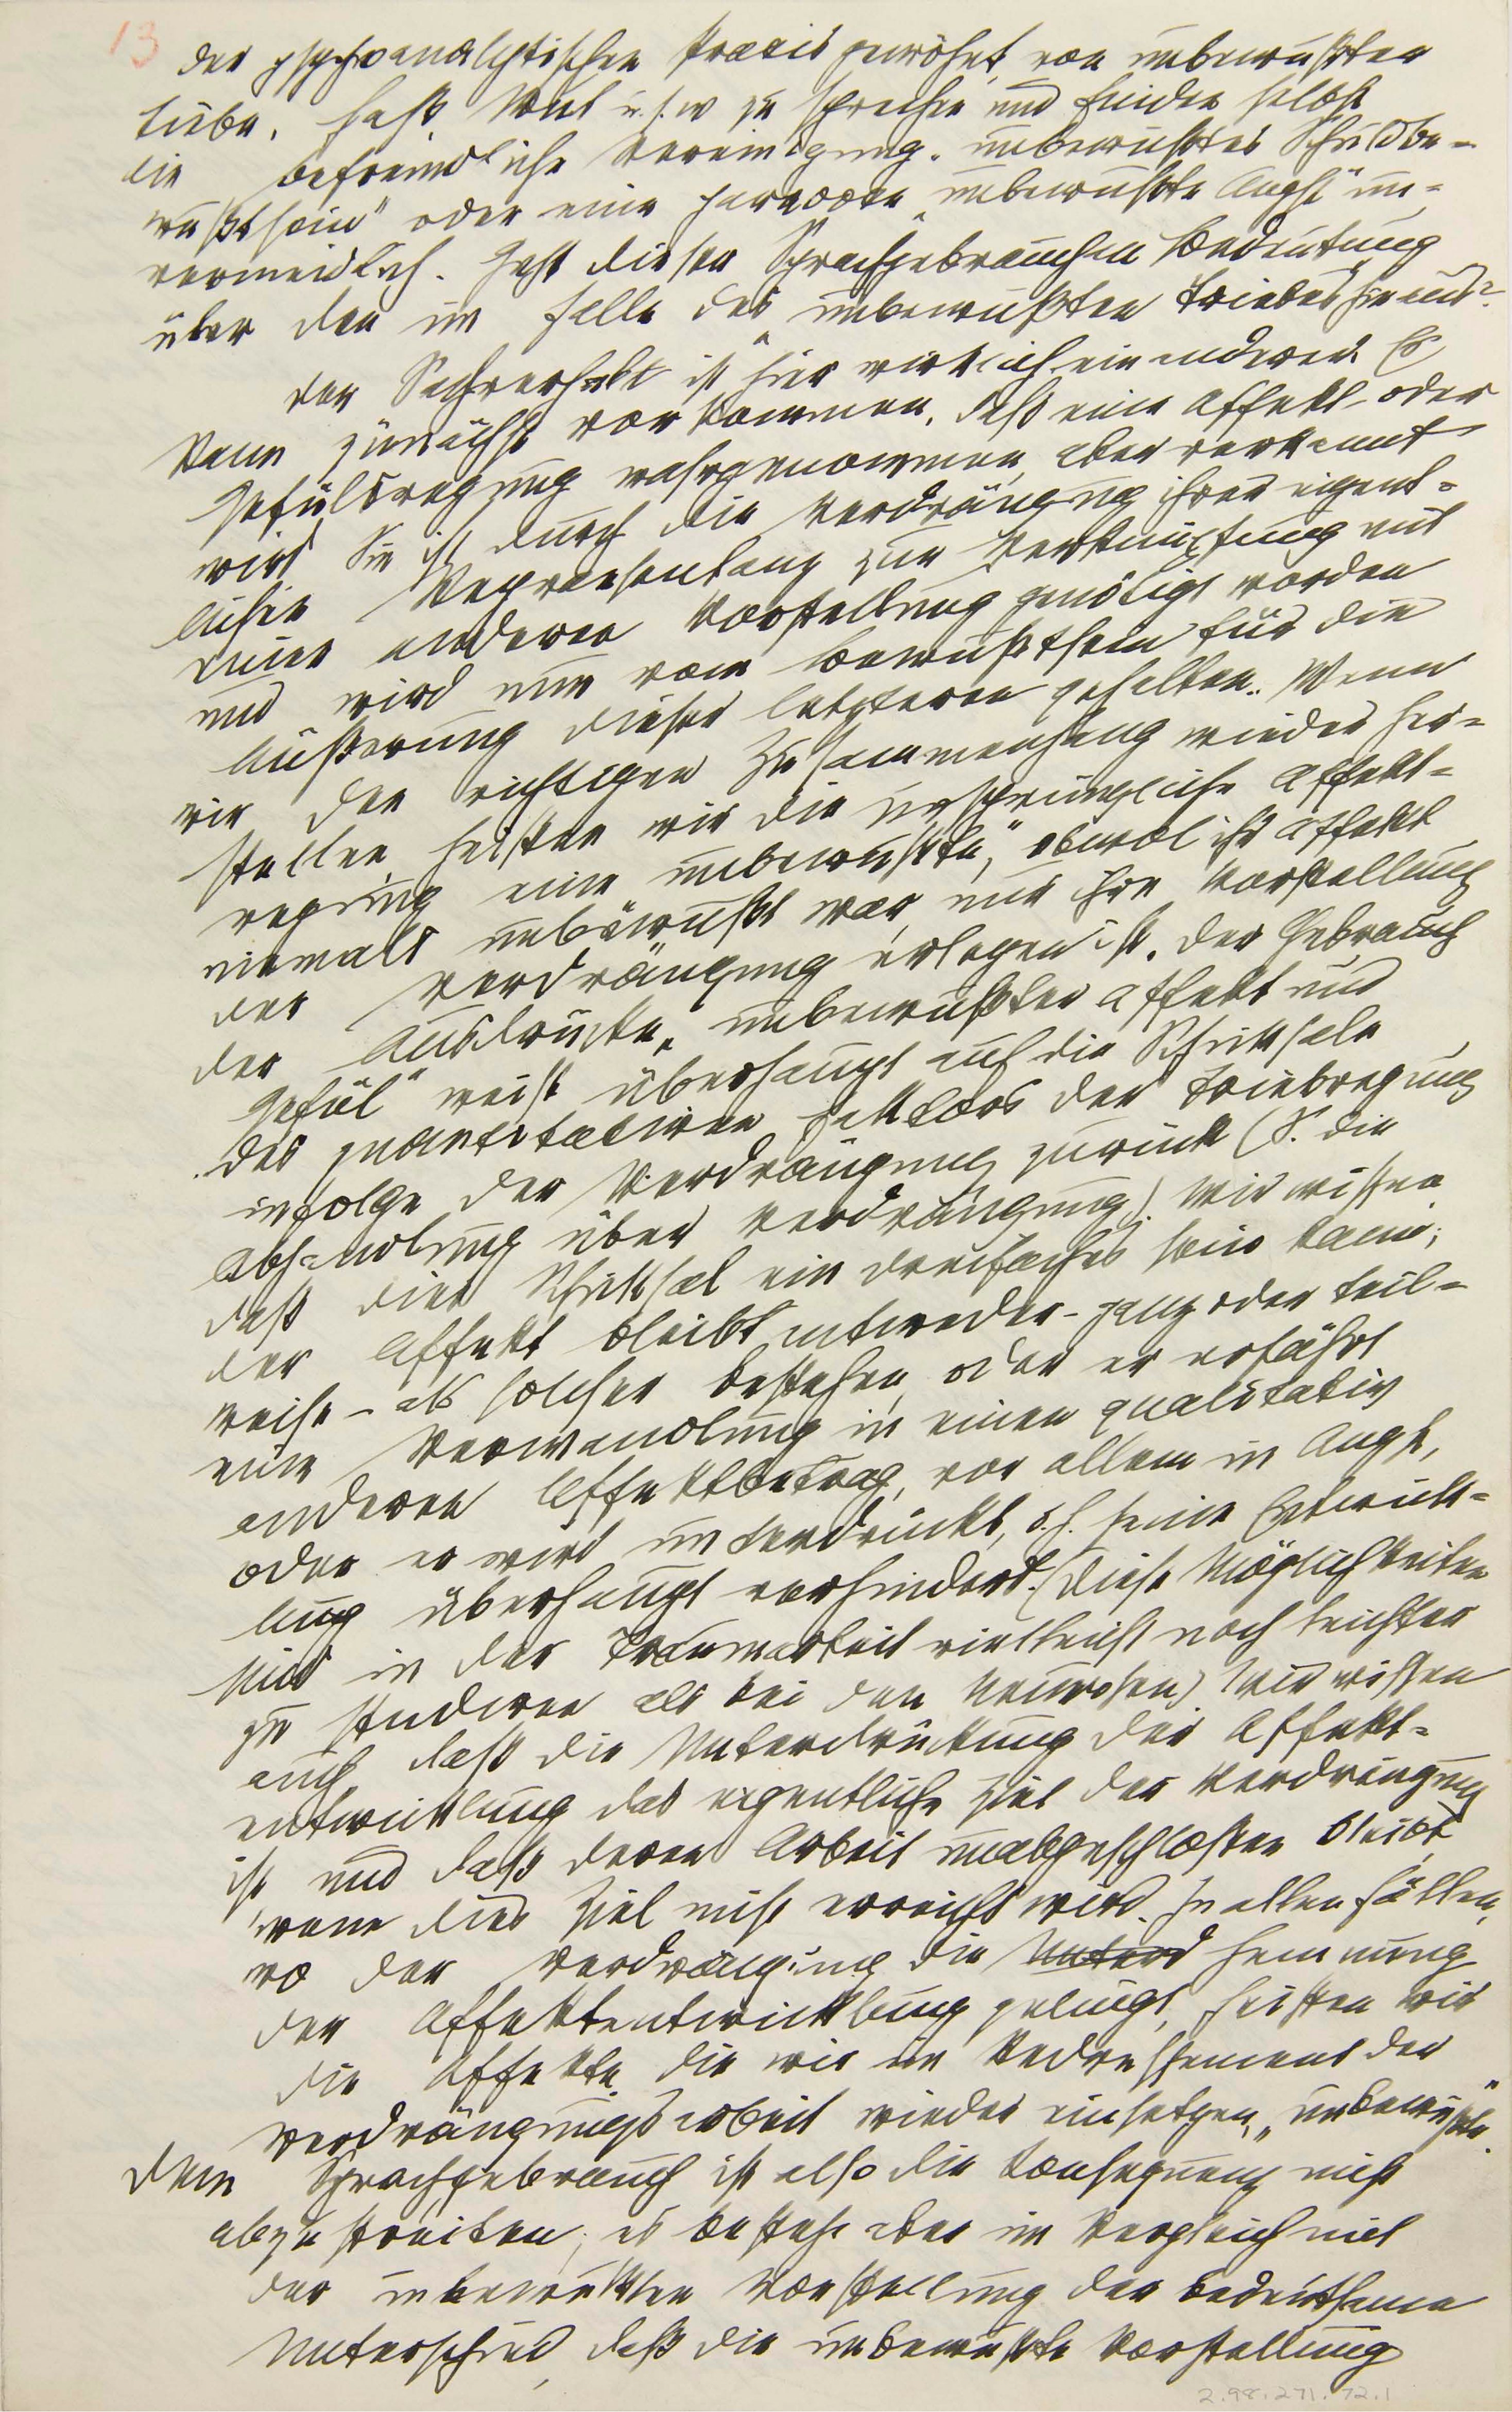 13
der psychoanalytischen Praxis gewöhnt, von unbewußter
Liebe, Haß, Wut u.s.w zu sprechen und finden selbst
die befremdliche Vereinigung „unbewußtes Schuldbe-
wußtsein" oder eine paradoxe „unbewußte Angst" un-
vermeidlich. Geht dieser Sprachgebrauch an Bedeutung
über den im Falle des „unbewußten Triebes" hinaus?
Der Sachverhalt ist hier wirklich ein anderer. Es
kann zunächst vorkommen, daß eine Affekt- oder
Gefülsregung wahrgenommen, aber verkannt
wird. Sie ist durch die Verdrängung ihrer eigent-
lichen Repraesentanz zur Verknüpfung mit
einer anderen Vorstellung genötigt worden
und wird nun vom Bewußtsein für die
Äußerung dieser letzteren gehalten. Wenn
wir den richtigen Zusammenhang wieder her-
stellen, heißen wir die ursprüngliche Affekt-
regung eine „unbewußte," obwol ihr Affekt
niemals unbewußt war, nur ihre Vorstellung
der Verdrängung erlegen ist. Der Gebrauch
der Ausdrücke „unbewußter Affekt und
Gefül" weist überhaupt auf die Schicksale
des quantitativen Faktors der Triebregung
infolge der Verdrängung zurück (S. die
Abhandlung über Verdrängung). Wir wissen
daß dies Schicksal ein dreifaches sein kann;
der Affekt bleibt entweder - ganz oder teil-
weise - als solcher bestehen, oder er erfährt
eine Verwandlung in einen qualitativ
anderen Affektbetrag, vor allem in Angst,
oder er wird unterdrückt, d.h. seine Entwick-
lung überhaupt verhindert. (Diese Möglichkeiten
sind in der Traumarbeit vielleicht noch leichter
zu studieren als bei den Neurosen) Wir wissen
auch, daß die Unterdrückung der Affekt-
entwicklung das eigentliche Ziel der Verdrängung
ist und daß deren Arbeit unabgeschlossen bleibt,
wenn dies Ziel nicht erreicht wird. In allen Fällen,
wo der Verdrängung die Unterd Hemmung
der Affektentwicklung gelingt, heißen wir
die Affekte, die wir im Redressement der
Verdrängungsarbeit wieder einsetzen, „unbewußte".
Dem Sprachgebrauch ist also die Consequenz nicht
abzustreiten; es besteht aber im Vergleich mit
der unbewußten Vorstellung der bedeutsame
Unterschied, daß die unbewußte Vorstellung
2.98.271.72.1